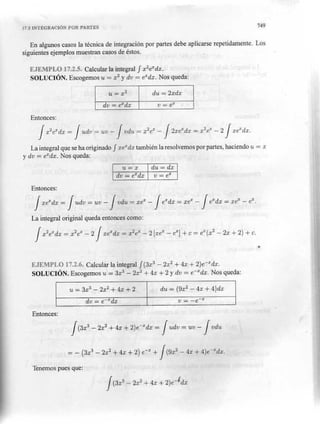 17.2 INTEGRACIÓN POR PARTES 749
En algunos casos la técnica de integración por partes debe aplicarse repetidamente. Los
siguientes ejemplos muestran casos de éstos.
EJEMPLO 17.2.5. Calcular la integral ∫ x²eˣdx.
SOLUCIÓN. Escogemos u = x² y dv = eˣdx. Nos queda:
u = x² du = 2xdx
dv = eˣdx v = eˣ
Entonces:
∫ x²eˣdx = ∫ udv = uv − ∫ vdu = x²eˣ − ∫ 2xeˣdx = x²eˣ − 2 ∫ xeˣdx.
La integral que se ha originado ∫ xeˣdx también la resolvemos por partes, haciendo u = x
y dv = eˣdx. Nos queda:
u = x du = dx
dv = eˣdx v = eˣ
Entonces:
∫ xeˣdx = ∫ udv = uv − ∫ vdu = xeˣ − ∫ eˣdx = xeˣ − ∫ eˣdx = xeˣ − eˣ.
La integral original queda entonces como:
∫ x²eˣdx = x²eˣ − 2 ∫ xeˣdx = x²eˣ − 2 [xeˣ − eˣ] + c = eˣ(x² − 2x + 2) + c.
EJEMPLO 17.2.6. Calcular la integral ∫(3x³ − 2x² + 4x + 2)e⁻ˣdx.
SOLUCIÓN. Escogemos u = 3x³ − 2x² + 4x + 2 y dv = e⁻ˣdx. Nos queda:
u = 3x³ − 2x² + 4x + 2 du = (9x² − 4x + 4)dx
dv = e⁻ˣdx v = −e⁻ˣ
Entonces:
∫(3x³ − 2x² + 4x + 2)e⁻ˣdx = ∫ udv = uv − ∫ vdu
= −(3x³ − 2x² + 4x + 2) e⁻ˣ + ∫(9x² − 4x + 4)e⁻ˣdx.
Tenemos pues que:
∫(3x³ − 2x² + 4x + 2)e⁻ˣdx